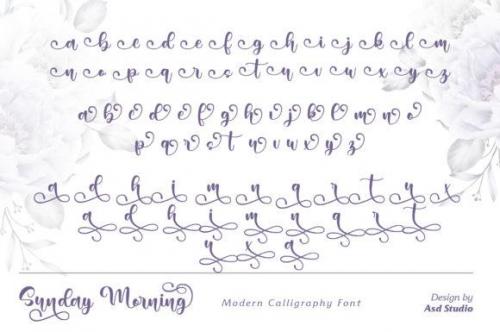 a b c d e f g h i j k l m
n o p q r s t u v w x y z
a b c d e f g h i j k l m n o
p q r s t u v w x y z
a d h i m n q r t y x
a d h i m n q r t
y x a
Sunday Morning
Modern Calligraphy Font
Design by
Asd Studio